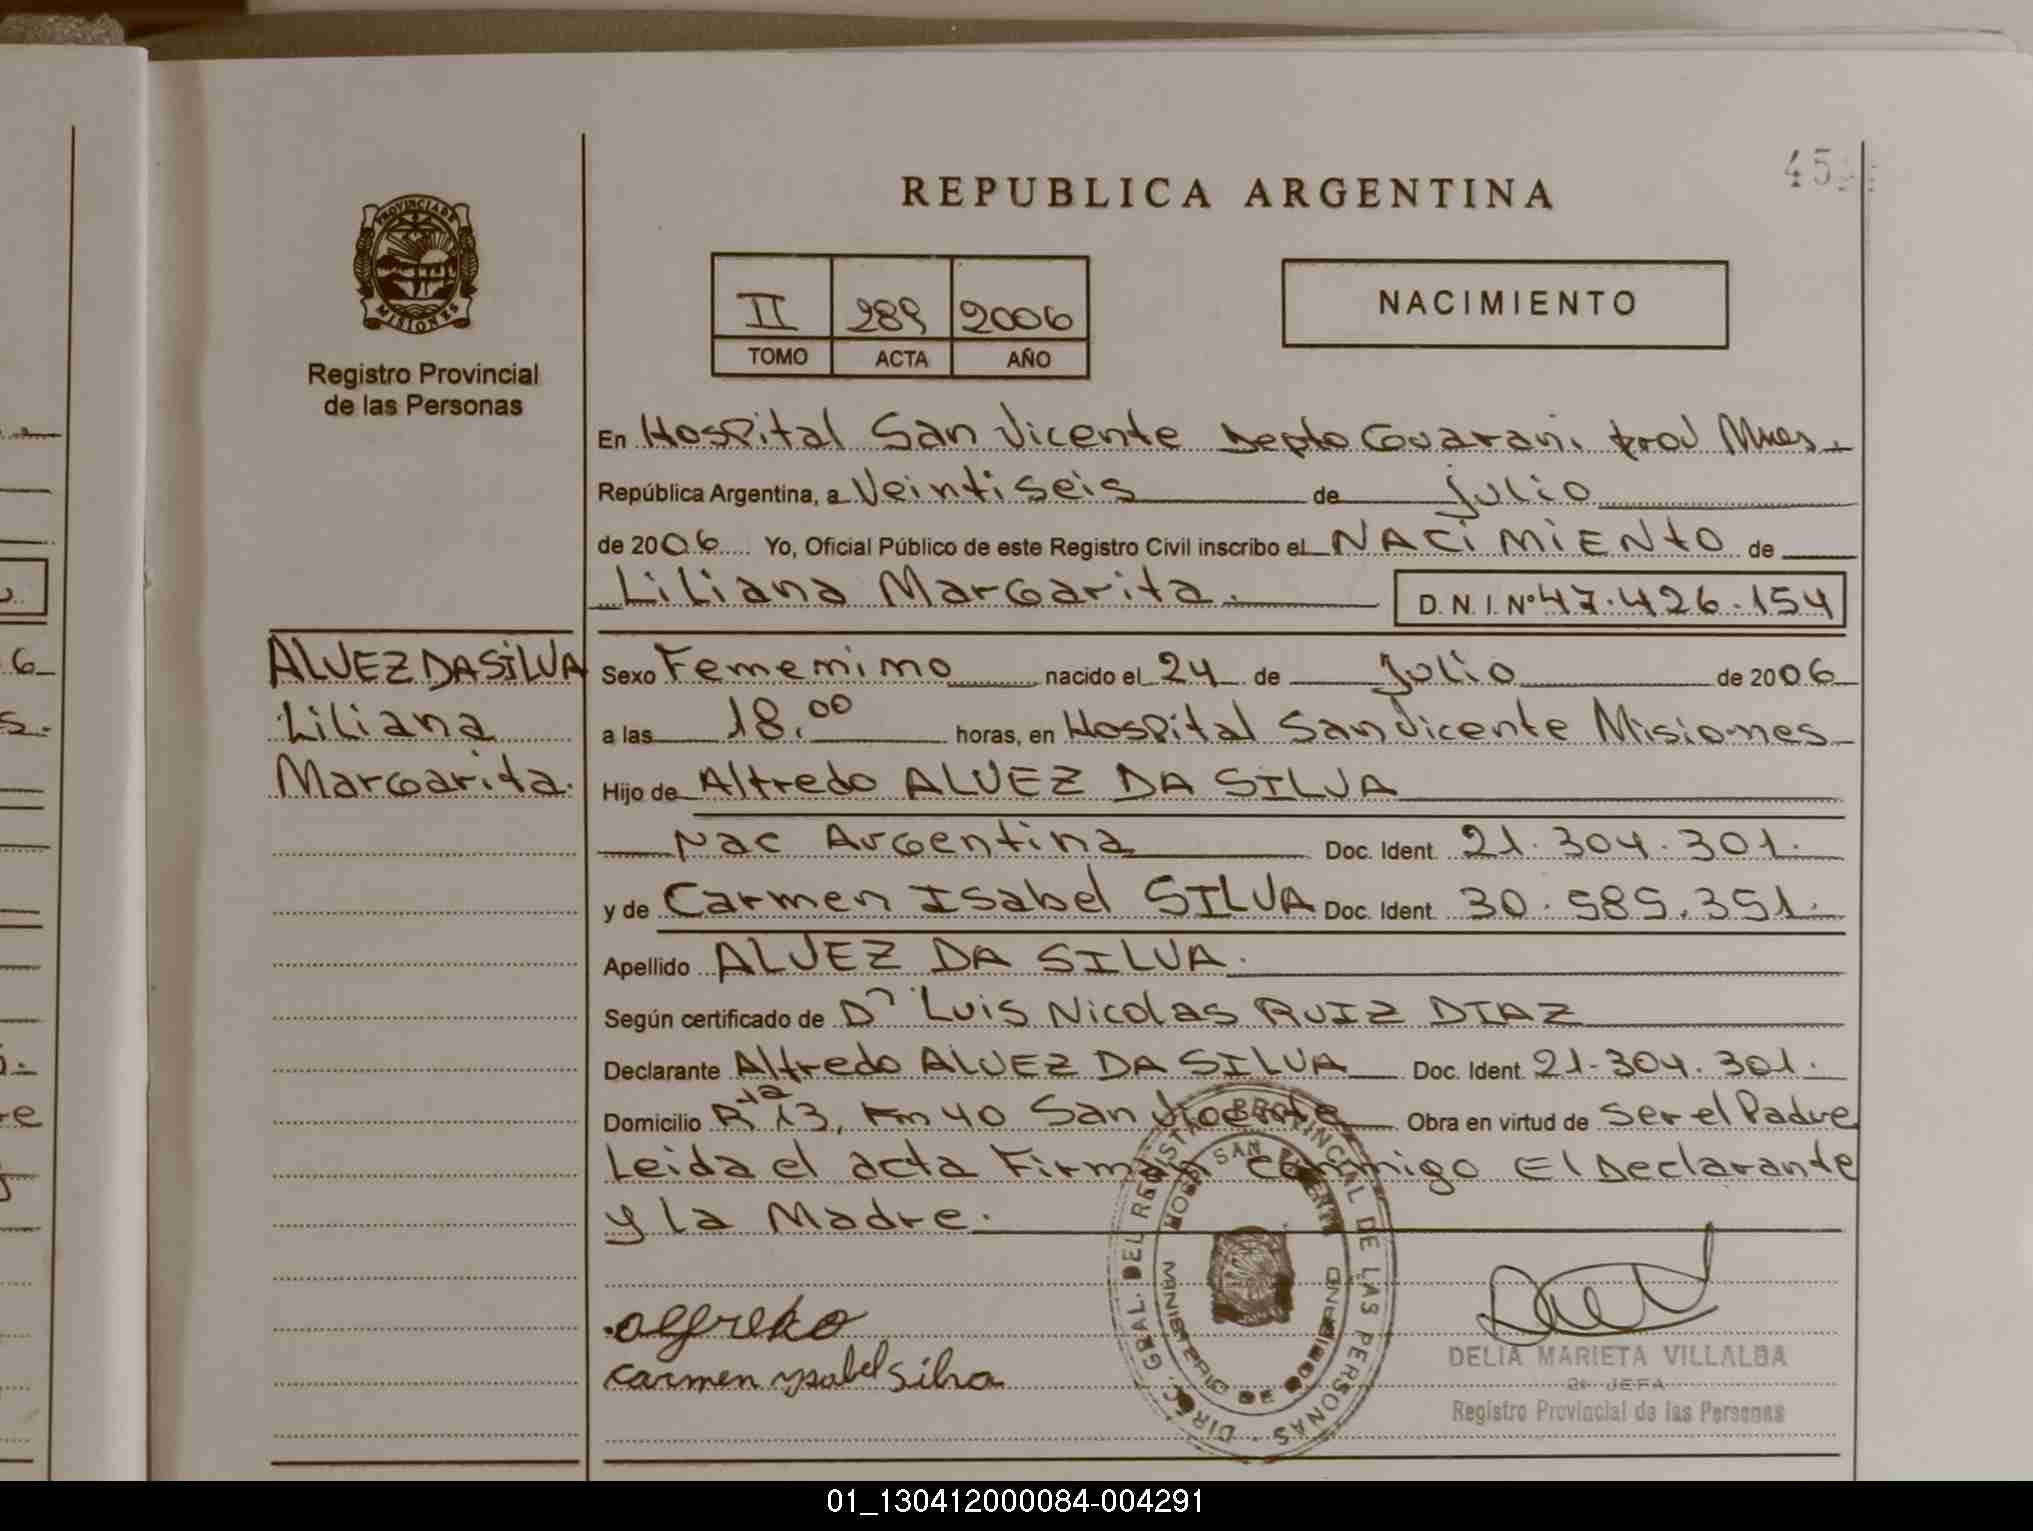 REPUBLICA ARGENTINA
PROVINCIA DE
MISIONES
Registro Provincial
de las Personas
II 289 2006
TOMO ACTA AÑO
NACIMIENTO
En Hospital San Vicente Depto Guarani. prov Mnes.
República Argentina, a Veintiseis de julio
de 2006 Yo, Oficial Público de este Registro Civil inscribo el NACIMIENTO de
Liliana Margarita. D.N.I.Nº 47.426.154
ALVEZ DA SILVA
Liliana
Margarita.
Sexo Femenino nacido el 24 de julio de 2006
a las 18.00 horas, en Hospital San Vicente Misiones
Hijo de Alfredo ALVEZ DA SILVA
Nac Argentina Doc. Ident. 21.304.301.
y de Carmen Isabel SILVA Doc. Ident. 30.585.351.
Apellido ALVEZ DA SILVA.
Según certificado de Dr Luis Nicolas RUIZ DIAZ
Declarante Alfredo ALVEZ DA SILVA Doc. Ident. 21-304.301.
Domicilio Rta 13, Km 40 San Vicente Obra en virtud de Ser el Padre
Leida el acta Firman conmigo El Declarante
y la Madre.
DIREC. GRAL. DEL REGISTRO PROVINCIAL DE LAS PERSONAS
HOSP. SAN VICENTE
MINISTERIO DE GOBIERNO
alfredo
carmen ysabel silva
DELIA MARIETA VILLALBA
JEFA
Registro Provincial de las Personas
01_130412000084-004291